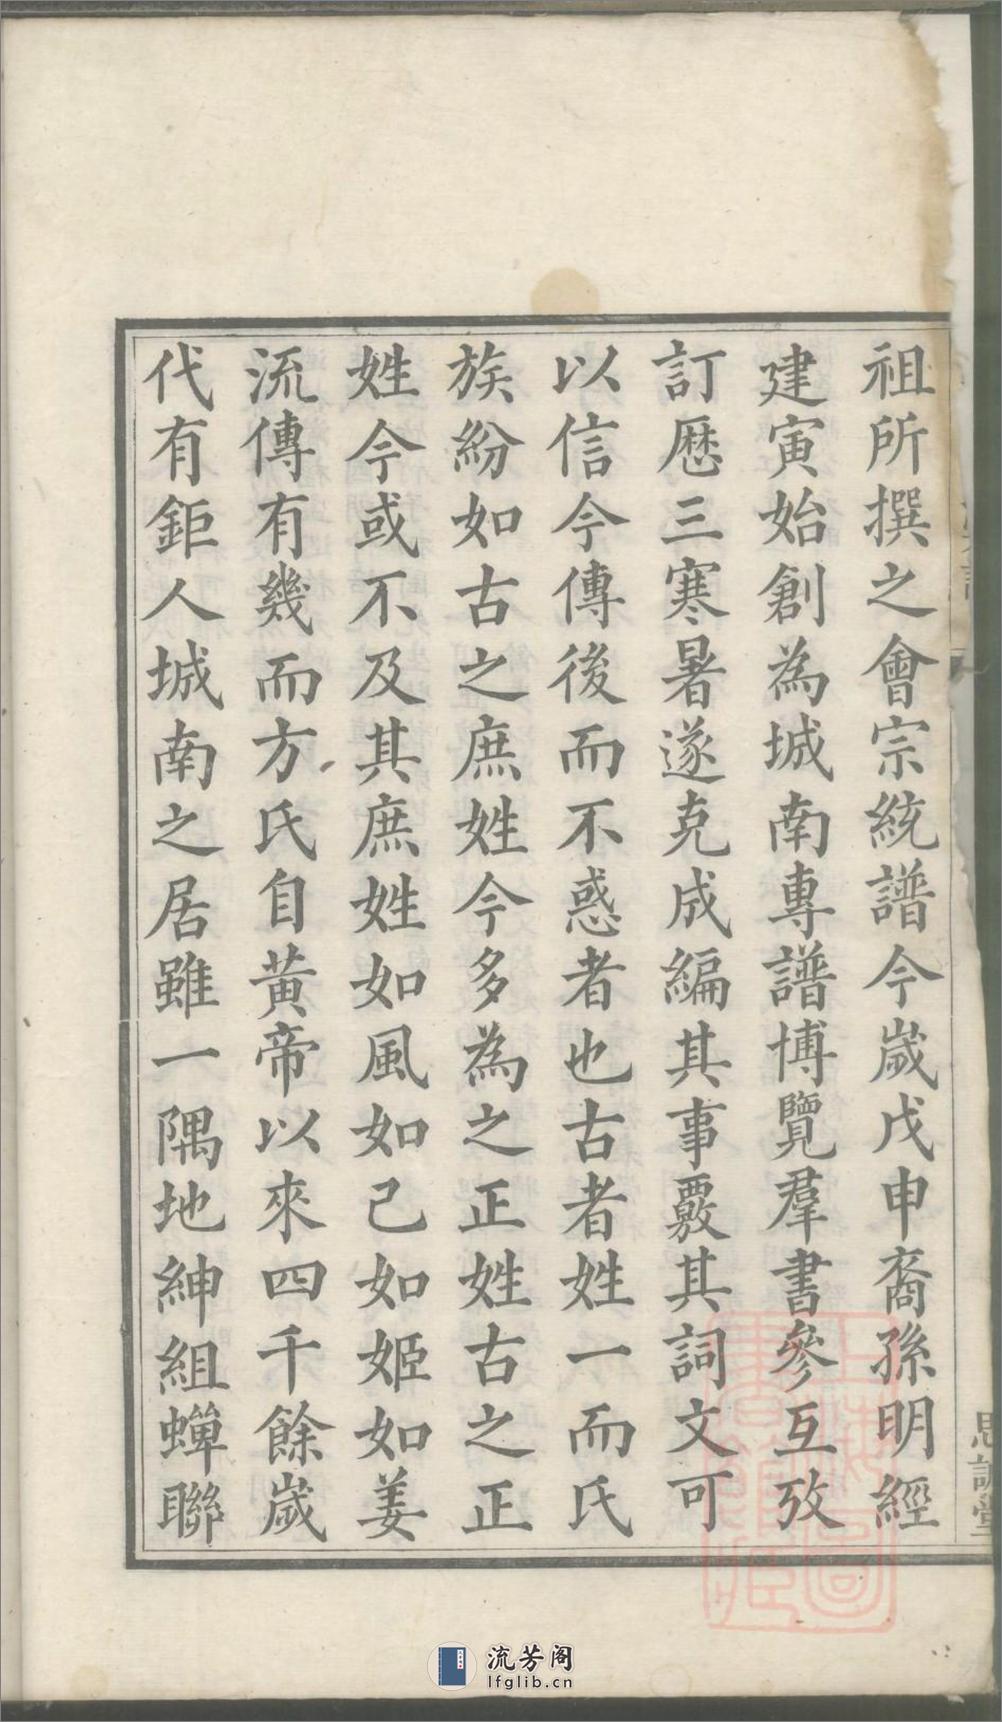 祖所撰之會宗統譜今嵗戊申裔孫明經
建寅始創為城南專譜博覽羣書參互攷
訂厯三寒暑遂克成編其事覈其詞文可
以信今傳後而不惑者也古者姓一而氏
族紛如古之庶姓今多為之正姓古之正
姓今或不及其庶姓如風如己如姬如姜
流傳有幾而方氏自黃帝以來四千餘嵗
代有鉅人城南之居雖一隅地紳組蟬聯
流芳阁
lfglib.cn